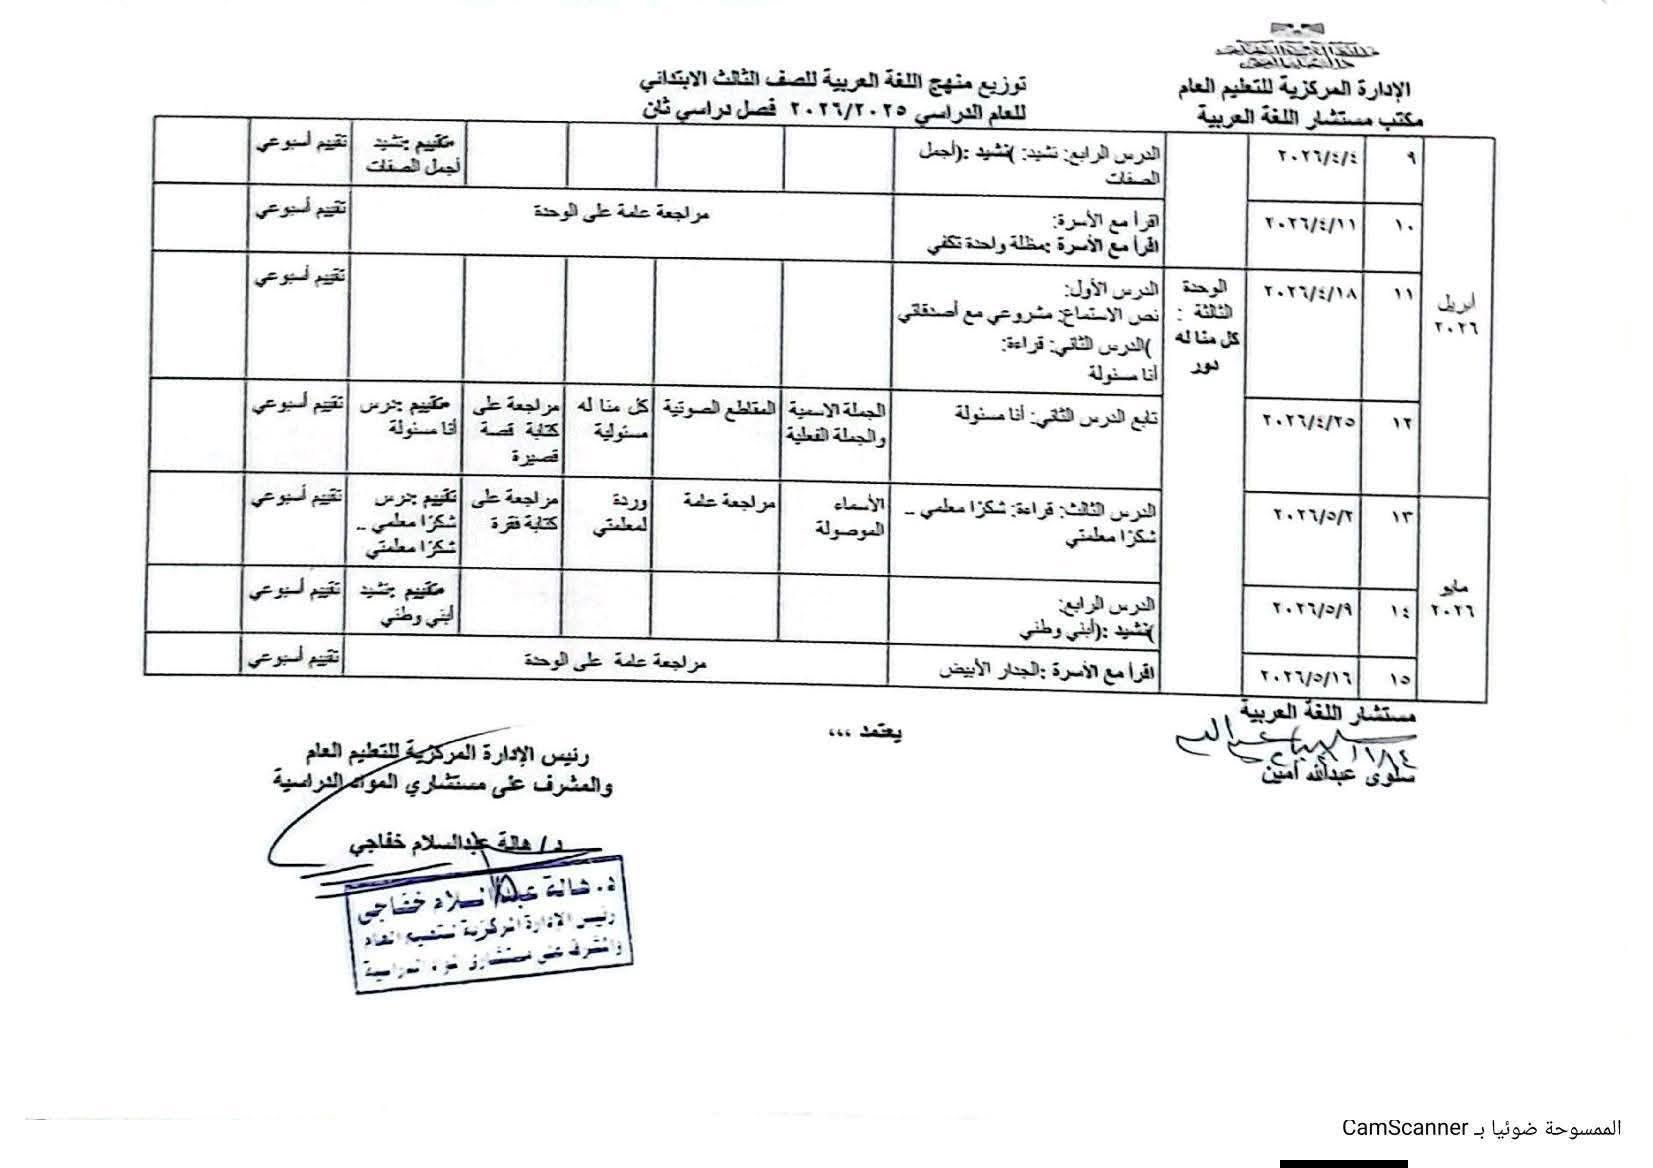 الإدارة المركزية للتعليم العام
مكتب مستشار اللغة العربية
توزيع منهج اللغة العربية للصف الثالث الابتدائي
للعام الدراسي ٢٠٢٦/٢٠٢٥ فصل دراسي ثان
أبريل
٢٠٢٦
٩
٢٠٢٦/٤/٤
الدرس الرابع: نشيد: )نشيد :(أجمل
الصفات
*تقييم :نشيد
أجمل الصفات
تقييم أسبوعي
١٠
٢٠٢٦/٤/١١
اقرأ مع الأسرة:
اقرأ مع الأسرة :مظلة واحدة تكفي
مراجعة عامة على الوحدة
تقييم أسبوعي
الوحدة
الثالثة :
كل منا له
دور
١١
٢٠٢٦/٤/١٨
الدرس الأول:
نص الاستماع: مشروعي مع أصدقائي
)الدرس الثاني: قراءة:
أنا مسئولة
تقييم أسبوعي
١٢
٢٠٢٦/٤/٢٥
تابع الدرس الثاني: أنا مسئولة
الجملة الاسمية
والجملة الفعلية
المقاطع الصوتية
كل منا له
مسئولية
مراجعة على
كتابة قصة
قصيرة
*تقييم :درس
أنا مسئولة
تقييم أسبوعي
مايو
٢٠٢٦
١٣
٢٠٢٦/٥/٢
الدرس الثالث: قراءة: شكرًا معلمي ..
شكرًا معلمتي
الأسماء
الموصولة
مراجعة عامة
وردة
لمعلمتي
مراجعة على
كتابة فقرة
تقييم :درس
شكرًا معلمي ..
شكرًا معلمتي
تقييم أسبوعي
١٤
٢٠٢٦/٥/٩
الدرس الرابع:
)نشيد :(أبني وطني
*تقييم :نشيد
أبني وطني
تقييم أسبوعي
١٥
٢٠٢٦/٥/١٦
اقرأ مع الأسرة :الجدار الأبيض
مراجعة عامة على الوحدة
تقييم أسبوعي
مستشار اللغة العربية
سلوى عبدالله أمين
يعتمد ،،،
رئيس الإدارة المركزية للتعليم العام
والمشرف على مستشاري المواد الدراسية
د/ هالة عبدالسلام خفاجي
د. هالة عبد السلام خفاجي
رئيس الإدارة المركزية للتعليم العام
والمشرف على مستشاري المواد الدراسية
الممسوحة ضوئيا بـ CamScanner